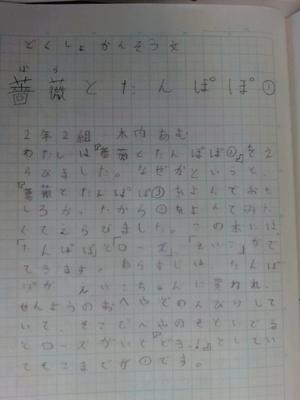 どくしょかんそう文
ばら
薔薇とたんぽぽ①
2年2組 木内あむ
わたしは『薔薇とたんぽぽ①』をえ
らびました。なぜかというと、
『薔薇とたんぽぽ①をよんでおも
しろかったから②もよんでみた
くてえらびました。この本には
「たんぽぽ」と「ローズ」、「えいこ」がで
てきます。あらすじは、たんぽ
ぽが、えいこちゃんに買われ、
せんようのおへやでのんびりして
いて、そこでへやのそとにでる
とローズがいて『どうも』としてい
てそこまでが①です。